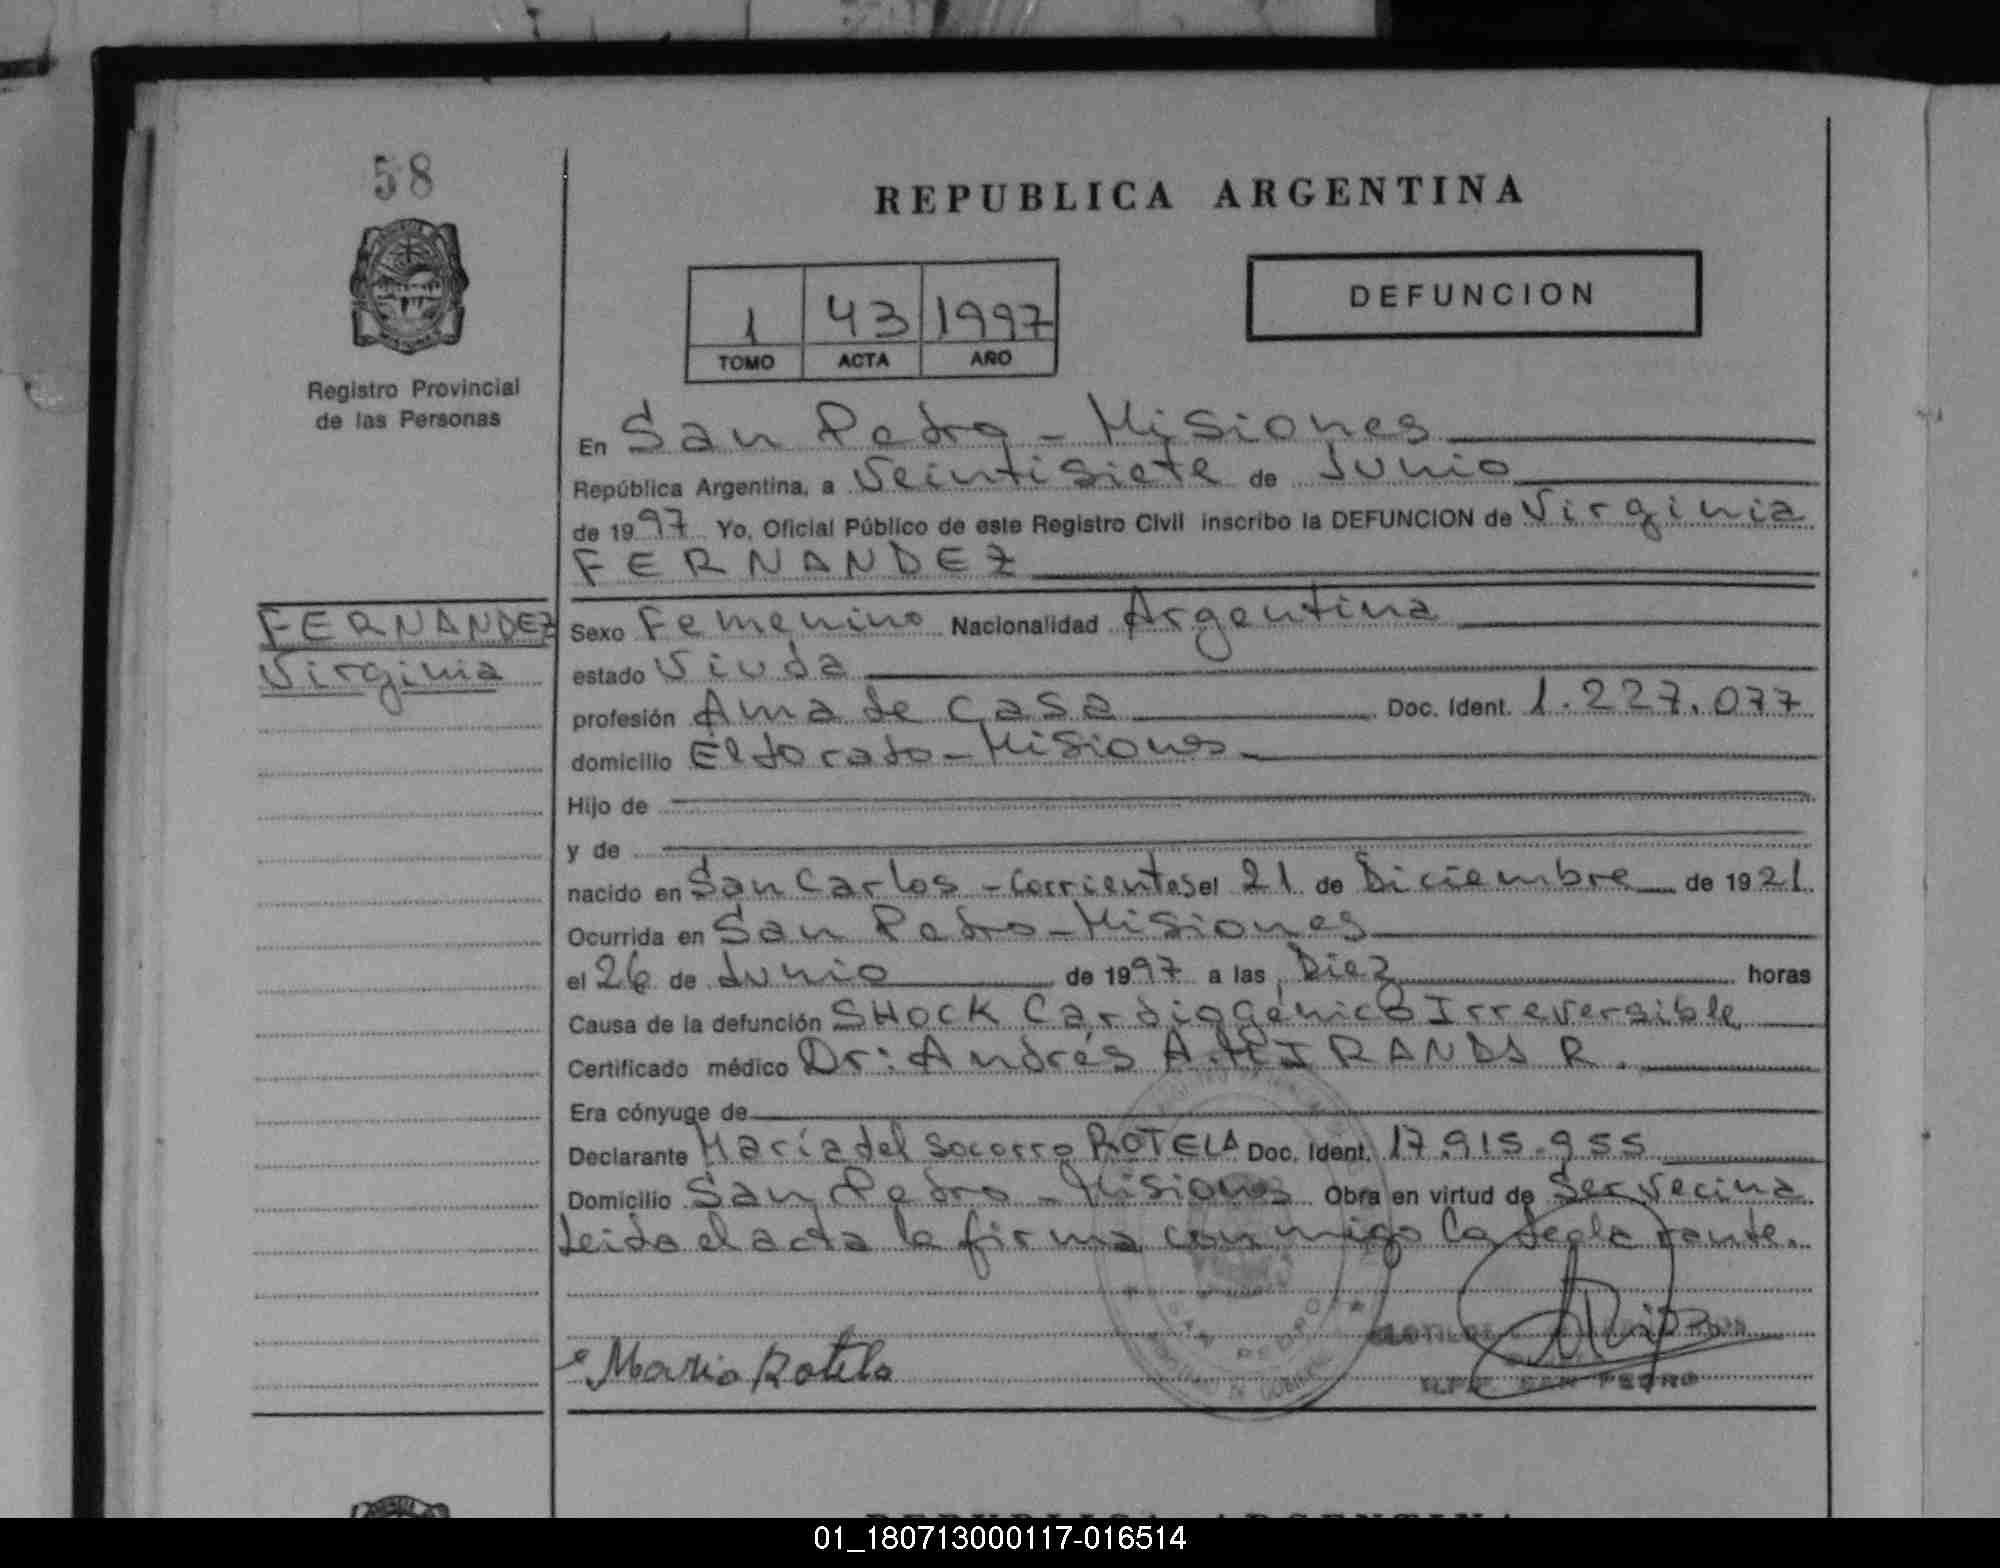 58
REPUBLICA ARGENTINA
1 43 1997
TOMO ACTA AÑO
DEFUNCION
Registro Provincial
de las Personas
En San Pedro - Misiones
República Argentina, a Veintisiete de Junio
de 1997 Yo, Oficial Público de este Registro Civil inscribo la DEFUNCION de Virginia
FERNANDEZ
FERNANDEZ
Virginia
Sexo Femenino Nacionalidad Argentina
estado Viuda
profesión Ama de casa Doc. Ident. 1.227.077
domicilio Eldorado - Misiones
Hijo de
y de
nacido en San Carlos - Corrientes el 21 de Diciembre de 1921
Ocurrida en San Pedro - Misiones
el 26 de Junio de 1997 a las Diez horas
Causa de la defunción SHOCK Cardiogénico Irreversible
Certificado médico Dr: Andrés A. MIRANDA R.
Era cónyuge de
Declarante María del Socorro ROTELA Doc. Ident. 17.915.955
Domicilio San Pedro - Misiones Obra en virtud de Ser vecina
Leida el acta la firma conmigo la declarante.
Maria Rotela
SAN PEDRO
SAN PEDRO
REPUBLICA ARGENTINA
01_180713000117-016514